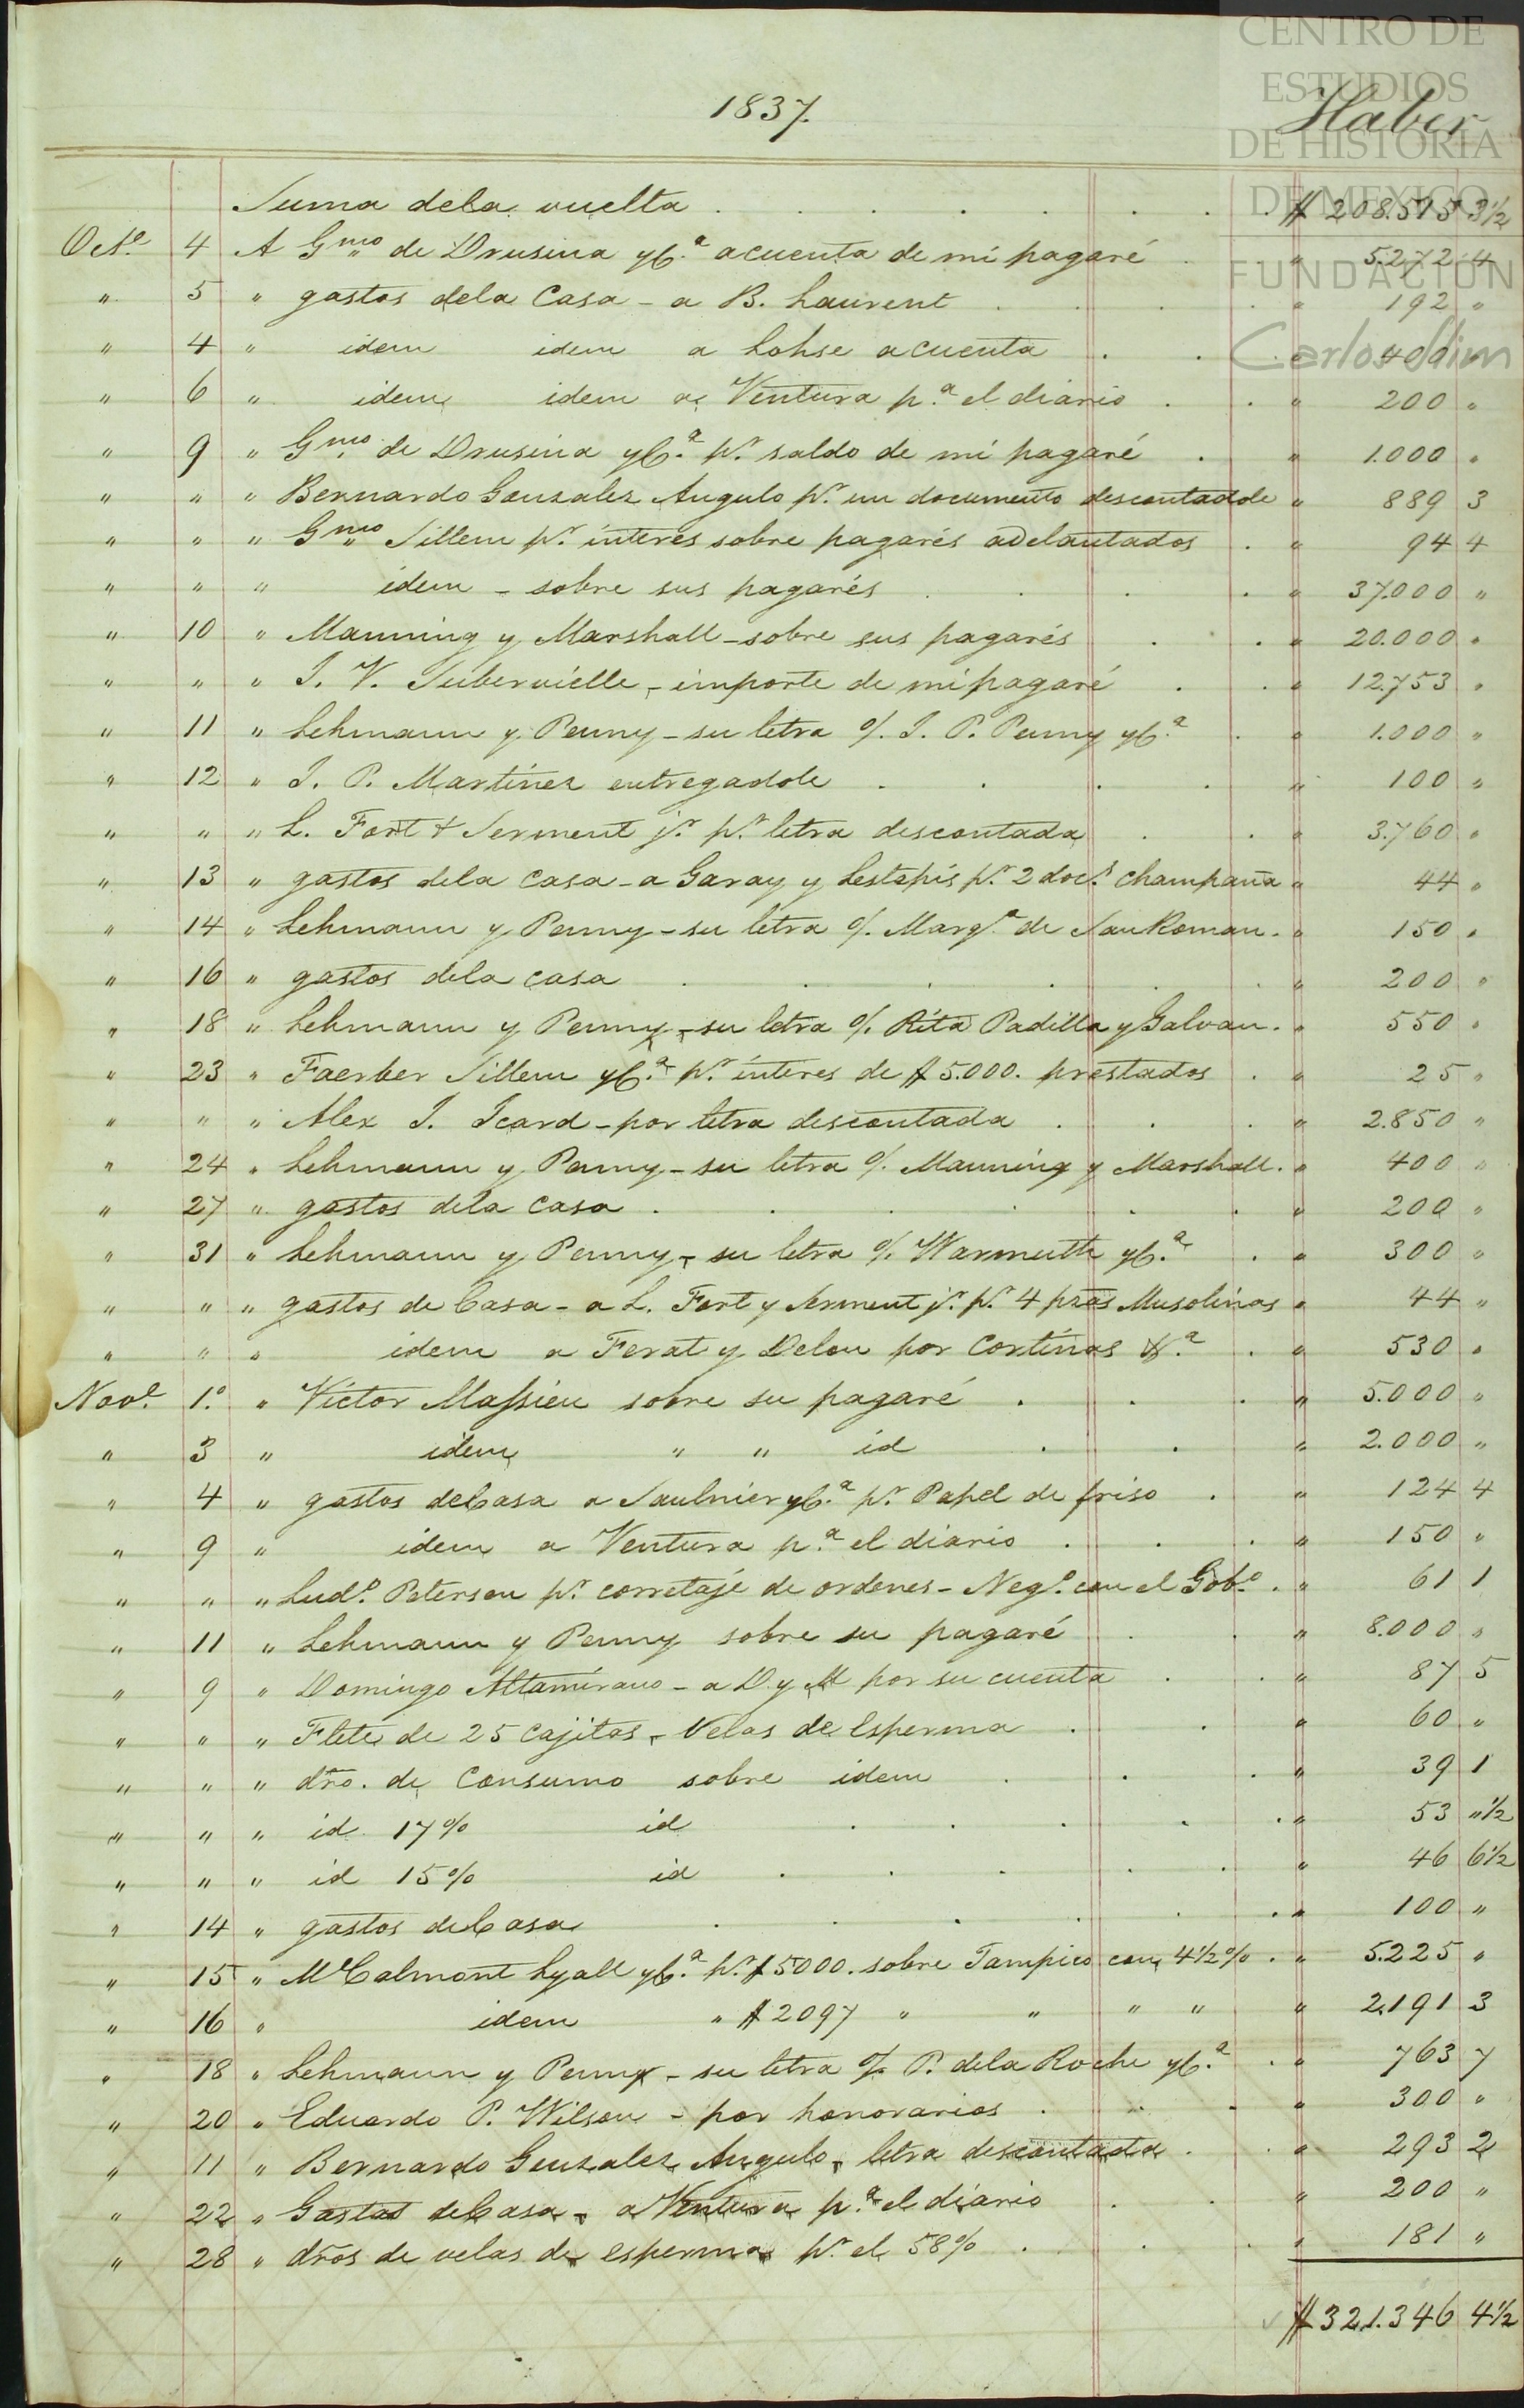 CENTRO DE
ESTUDIOS
DE HISTORIA
DE MEXICO
FUNDACIÓN
Carlos Slim
1837.
Haber
Suma dela vuelta . . . . . . . $ 208.575 3½
Oct.e 4 A Gmo de Drusina yC.a acuenta de mi pagaré . " 5.272 4
" 5 " gastos dela Casa - a B. Laurent . . . " 192 "
" 4 " idem idem a Lohse acuenta . . . " 400 "
" 6 " idem idem a Ventura p.a el diario . . " 200 "
" 9 " Gmo de Drusina yC.a p.r saldo de mi pagaré . " 1.000 "
" " " Bernardo Gonzalez Angulo p.r un documento descontadole " 889 3
" " " Gmo Sillem p.r interes sobre pagarés adelantados . " 94 4
" " " idem - sobre sus pagarés . . . . " 37.000 "
" 10 " Manning y Marshall - sobre sus pagarés . . . " 20.000 "
" " " J. V. Subervielle - importe de mi pagaré . . " 12.753 "
" 11 " Lehmann y Penny - su letra o/. J. P. Penny yC.a . " 1.000 "
" 12 " J. P. Martinez entregadole . . . . " 100 "
" " " L. Fort & Serment j.r p.r letra descontada . . " 3.760 "
" 13 " gastos dela casa - a Garay y Lestapis p.r 2 doc.s champaña " 44 "
" 14 " Lehmann y Penny - su letra o/. Marg.a de San Roman . " 150 "
" 16 " gastos dela casa . . . . . . " 200 "
" 18 " Lehmann y Penny - su letra o/. Rita Padilla y Galvan . " 550 "
" 23 " Faerber Sillem yC.a p.r interes de $ 5.000. prestados . " 25 "
" " " Alex J. Icard - por letra descontada . . . " 2.850 "
" 24 " Lehmann y Penny - su letra o/. Manning y Marshall . " 400 "
" 27 " gastos dela casa . . . . . . " 200 "
" 31 " Lehmann y Penny - su letra o/. Warmuth yC.a . " 300 "
" " " gastos de Casa - a L. Fort y Serment j.r p.r 4 pzas Musolinas " 44 "
" " " idem a Ferat y Delou por Cortinas &.a . " 530 "
Nov.e 1.o " Victor Massieu sobre su pagaré . . . " 5.000 "
" 3 " idem " " id . . " 2.000 "
" 4 " gastos deCasa a Saulnier yC.a p.r Papel de friso . " 124 4
" 9 " idem a Ventura p.a el diario . . . " 150 "
" " " Lud.o Petersen p.r corretaje de ordenes - Neg.o con el Gob.o . " 61 1
" 11 " Lehmann y Penny sobre su pagaré . . " 8.000 "
" 9 " Domingo Altamirano - a D. y M por su cuenta . . " 87 5
" " " Flete de 25 cajitas - Velas de Esperma . . " 60 "
" " " dro. de Consumo sobre idem . . . " 39 1
" " " id. 17% id . . . . . " 53 "½
" " " id 15% id . . . . . " 46 6½
" 14 " gastos deCasa . . . . . " 100 "
" 15 " McCalmont Lyall yC.a p.r $ 5000. sobre Tampico con 4½% . " 5.225 "
" 16 " idem " $ 2097 " " " " " 2.191 3
" 18 " Lehmann y Penny - su letra o/. P. dela Roche yC.a . " 763 7
" 20 " Eduardo P. Wilson - por honorarios . . . " 300 "
" 11 " Bernardo Gonzalez Angulo - letra descontada . . " 293 2
" 22 " Gastos deCasa - a Ventura p.a el diario . . " 200 "
" 28 " dros de velas de esperma p.r el 58% . . . " 181 "
$ 321.346 4½